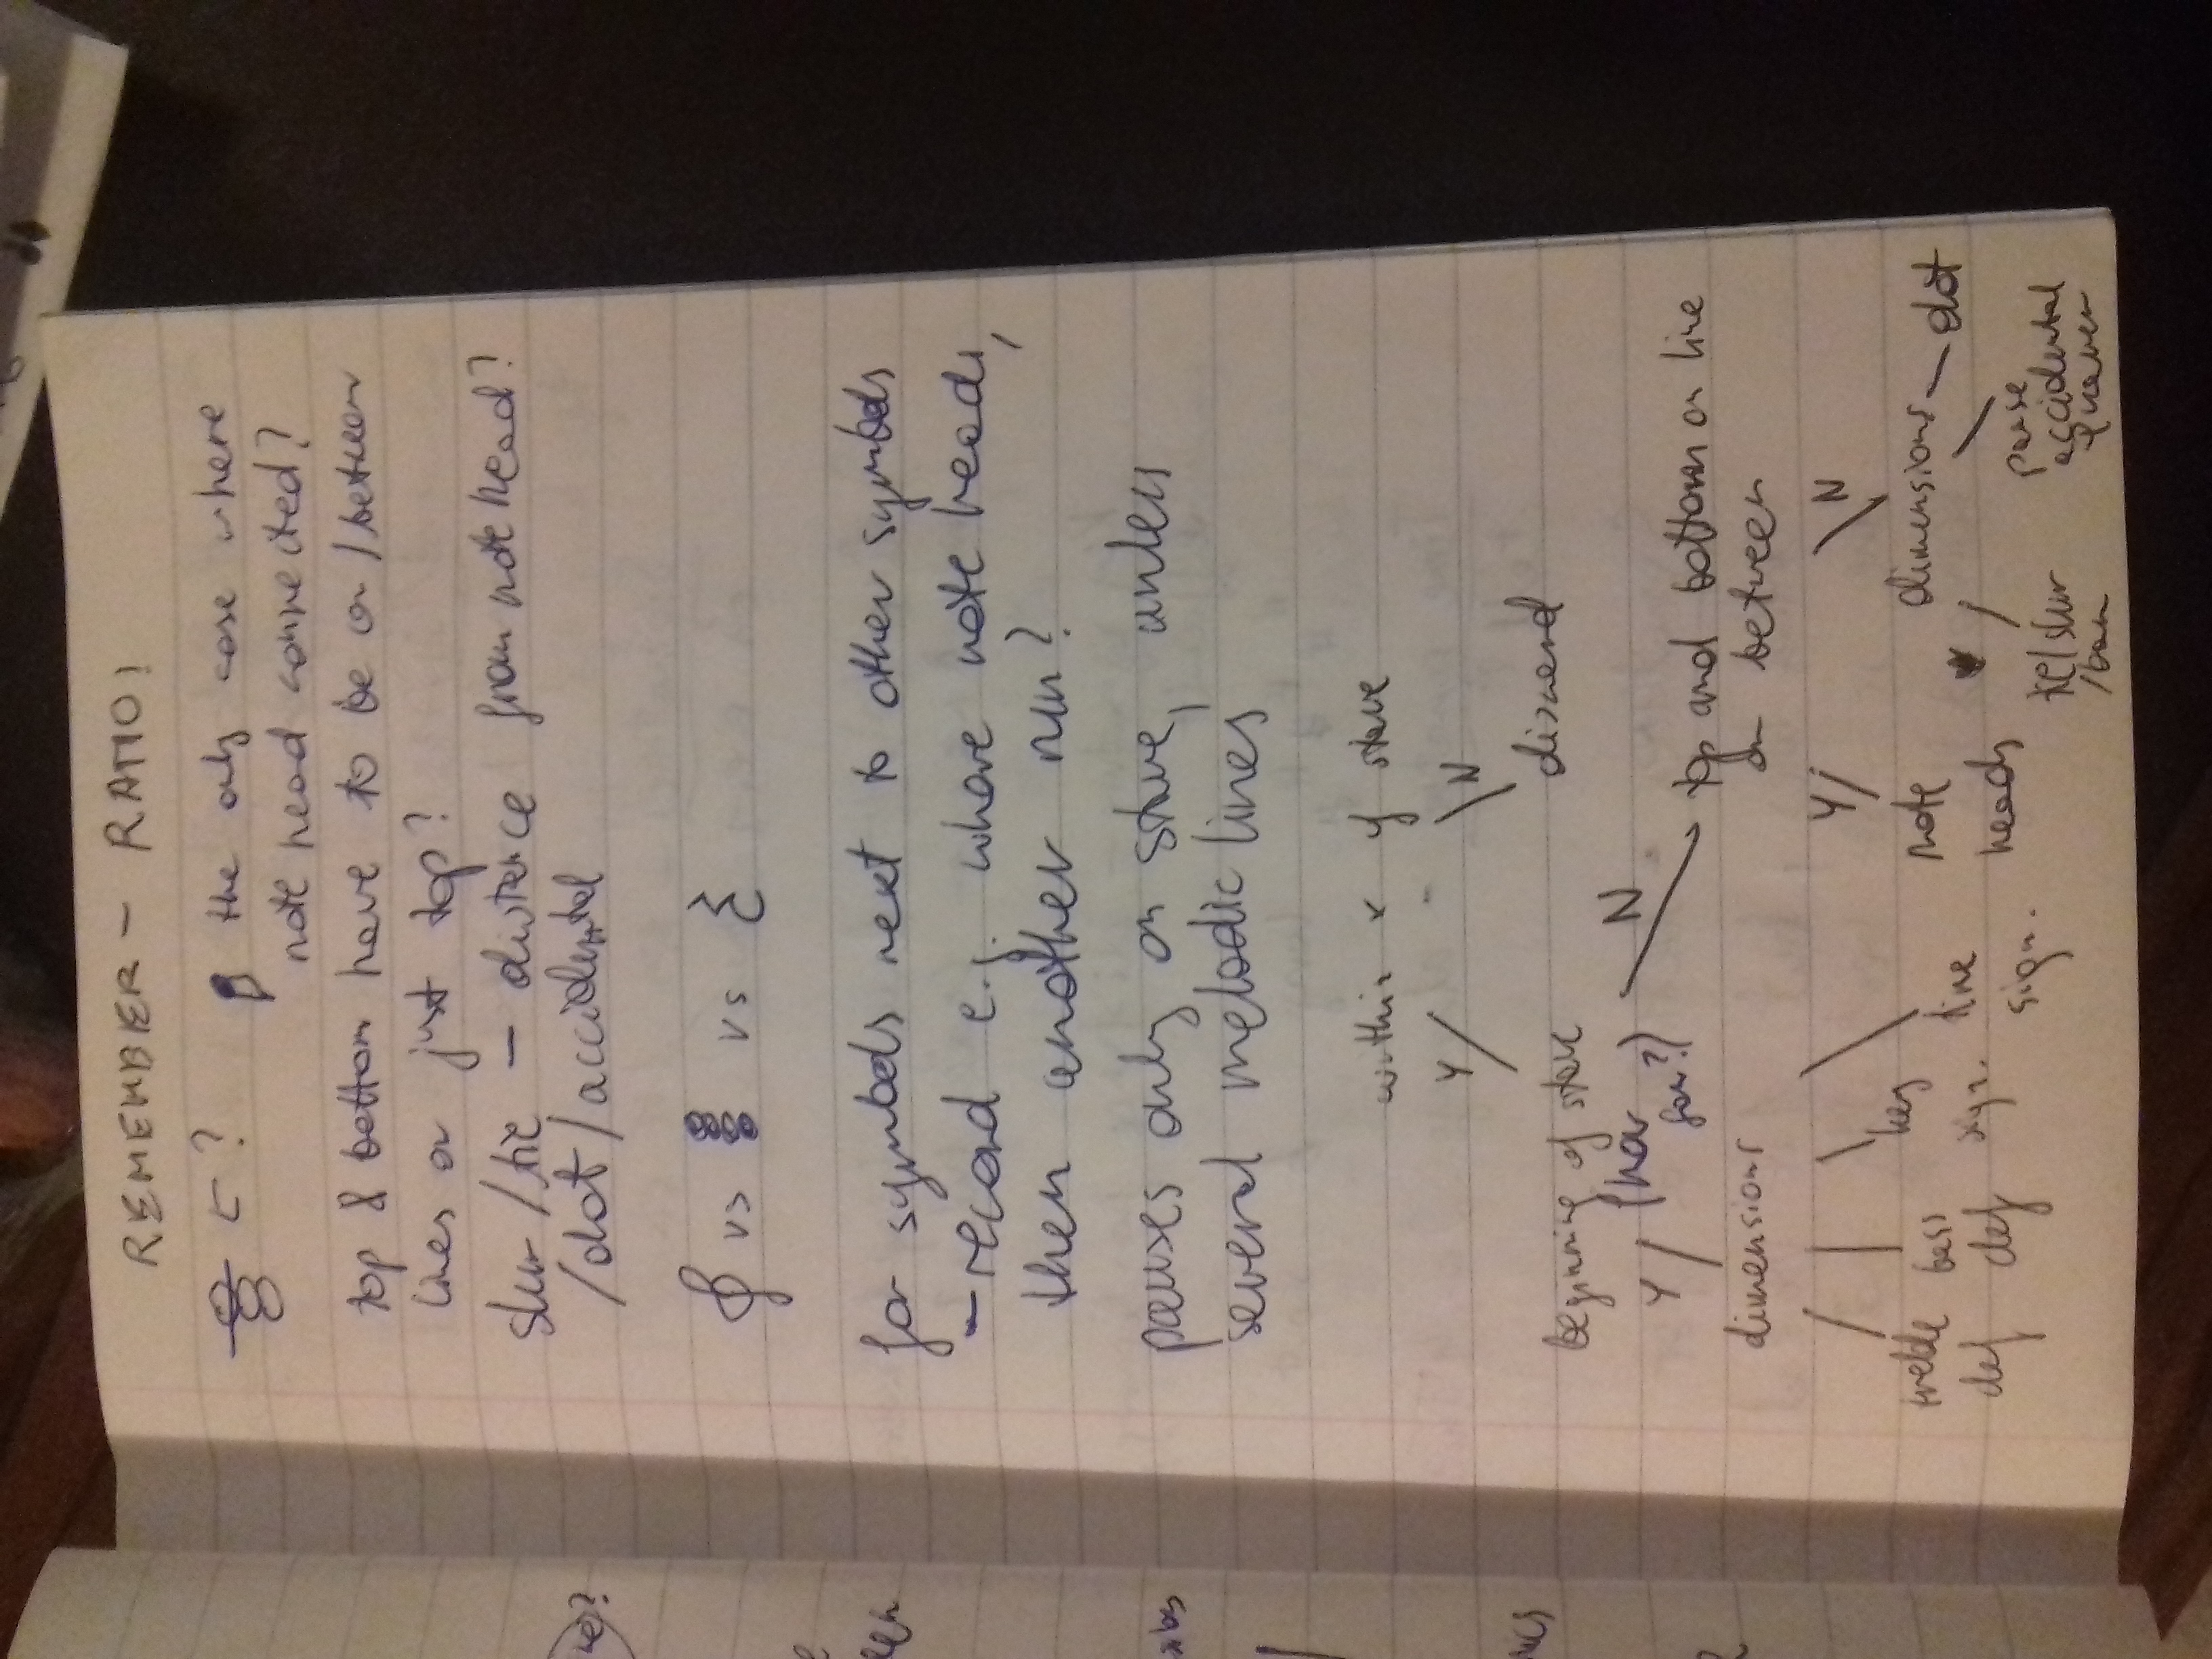 REMEMBER - RATIO!
?
the only case where
note head connected?
top & bottom have to be on/between
lines or just top?
slur/tie - distance from note head?
/dot/accidental
vs vs
for symbols next to other symbols
- record e.g. where note heads,
then another run?
pauses only on stave, unless
several melodic lines
within x of stave
Y N
discard
beginning of stave
(how
far?)
Y N
top and bottom on line
or between
dimensions
Y N
treble bass key time
clef clef sign. sign.
note
heads
dimensions dot
tie/slur
/bar
pause
accidental
quaver